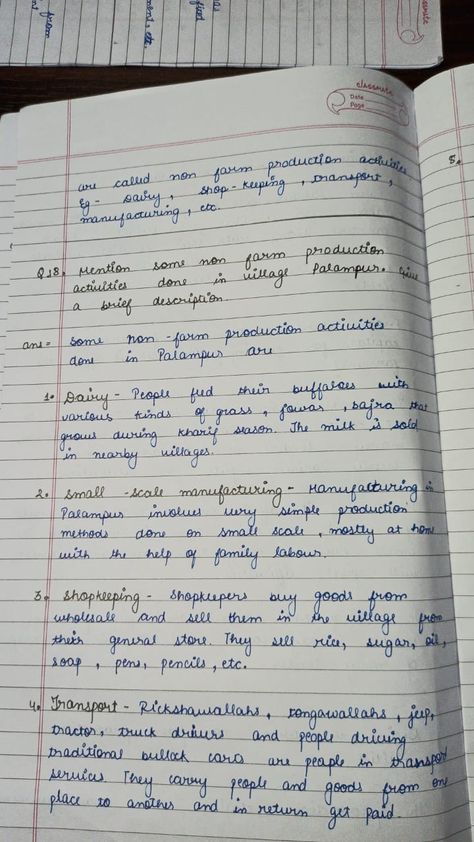 from
ment, etc.
fied
classmate
Date
Page
are called non farm production activities.
Eg - Dairy, shop-keeping, transport,
manufacturing, etc.
5.
Q18. Mention some non farm production
activities done in village Palampur. Give
a brief description.
ans = Some non-farm production activities
done in Palampur are
1. Dairy - People fed their buffaloes with
various kinds of grass, jowar, bajra that
grows during kharif season. The milk is sold
in nearby villages.
2. Small-scale manufacturing - Manufacturing in
Palampur involves very simple production
methods done on small scale, mostly at home
with the help of family labour.
3. Shopkeeping - Shopkeepers buy goods from
wholesale and sell them in the village from
their general store. They sell rice, sugar, oil,
soap, pens, pencils, etc.
4. Transport - Rickshawallahs, tongawallahs, jeep,
tractor, truck drivers and people driving
traditional bullock cars are people in transport
services. They carry people and goods from one
place to another and in return get paid.